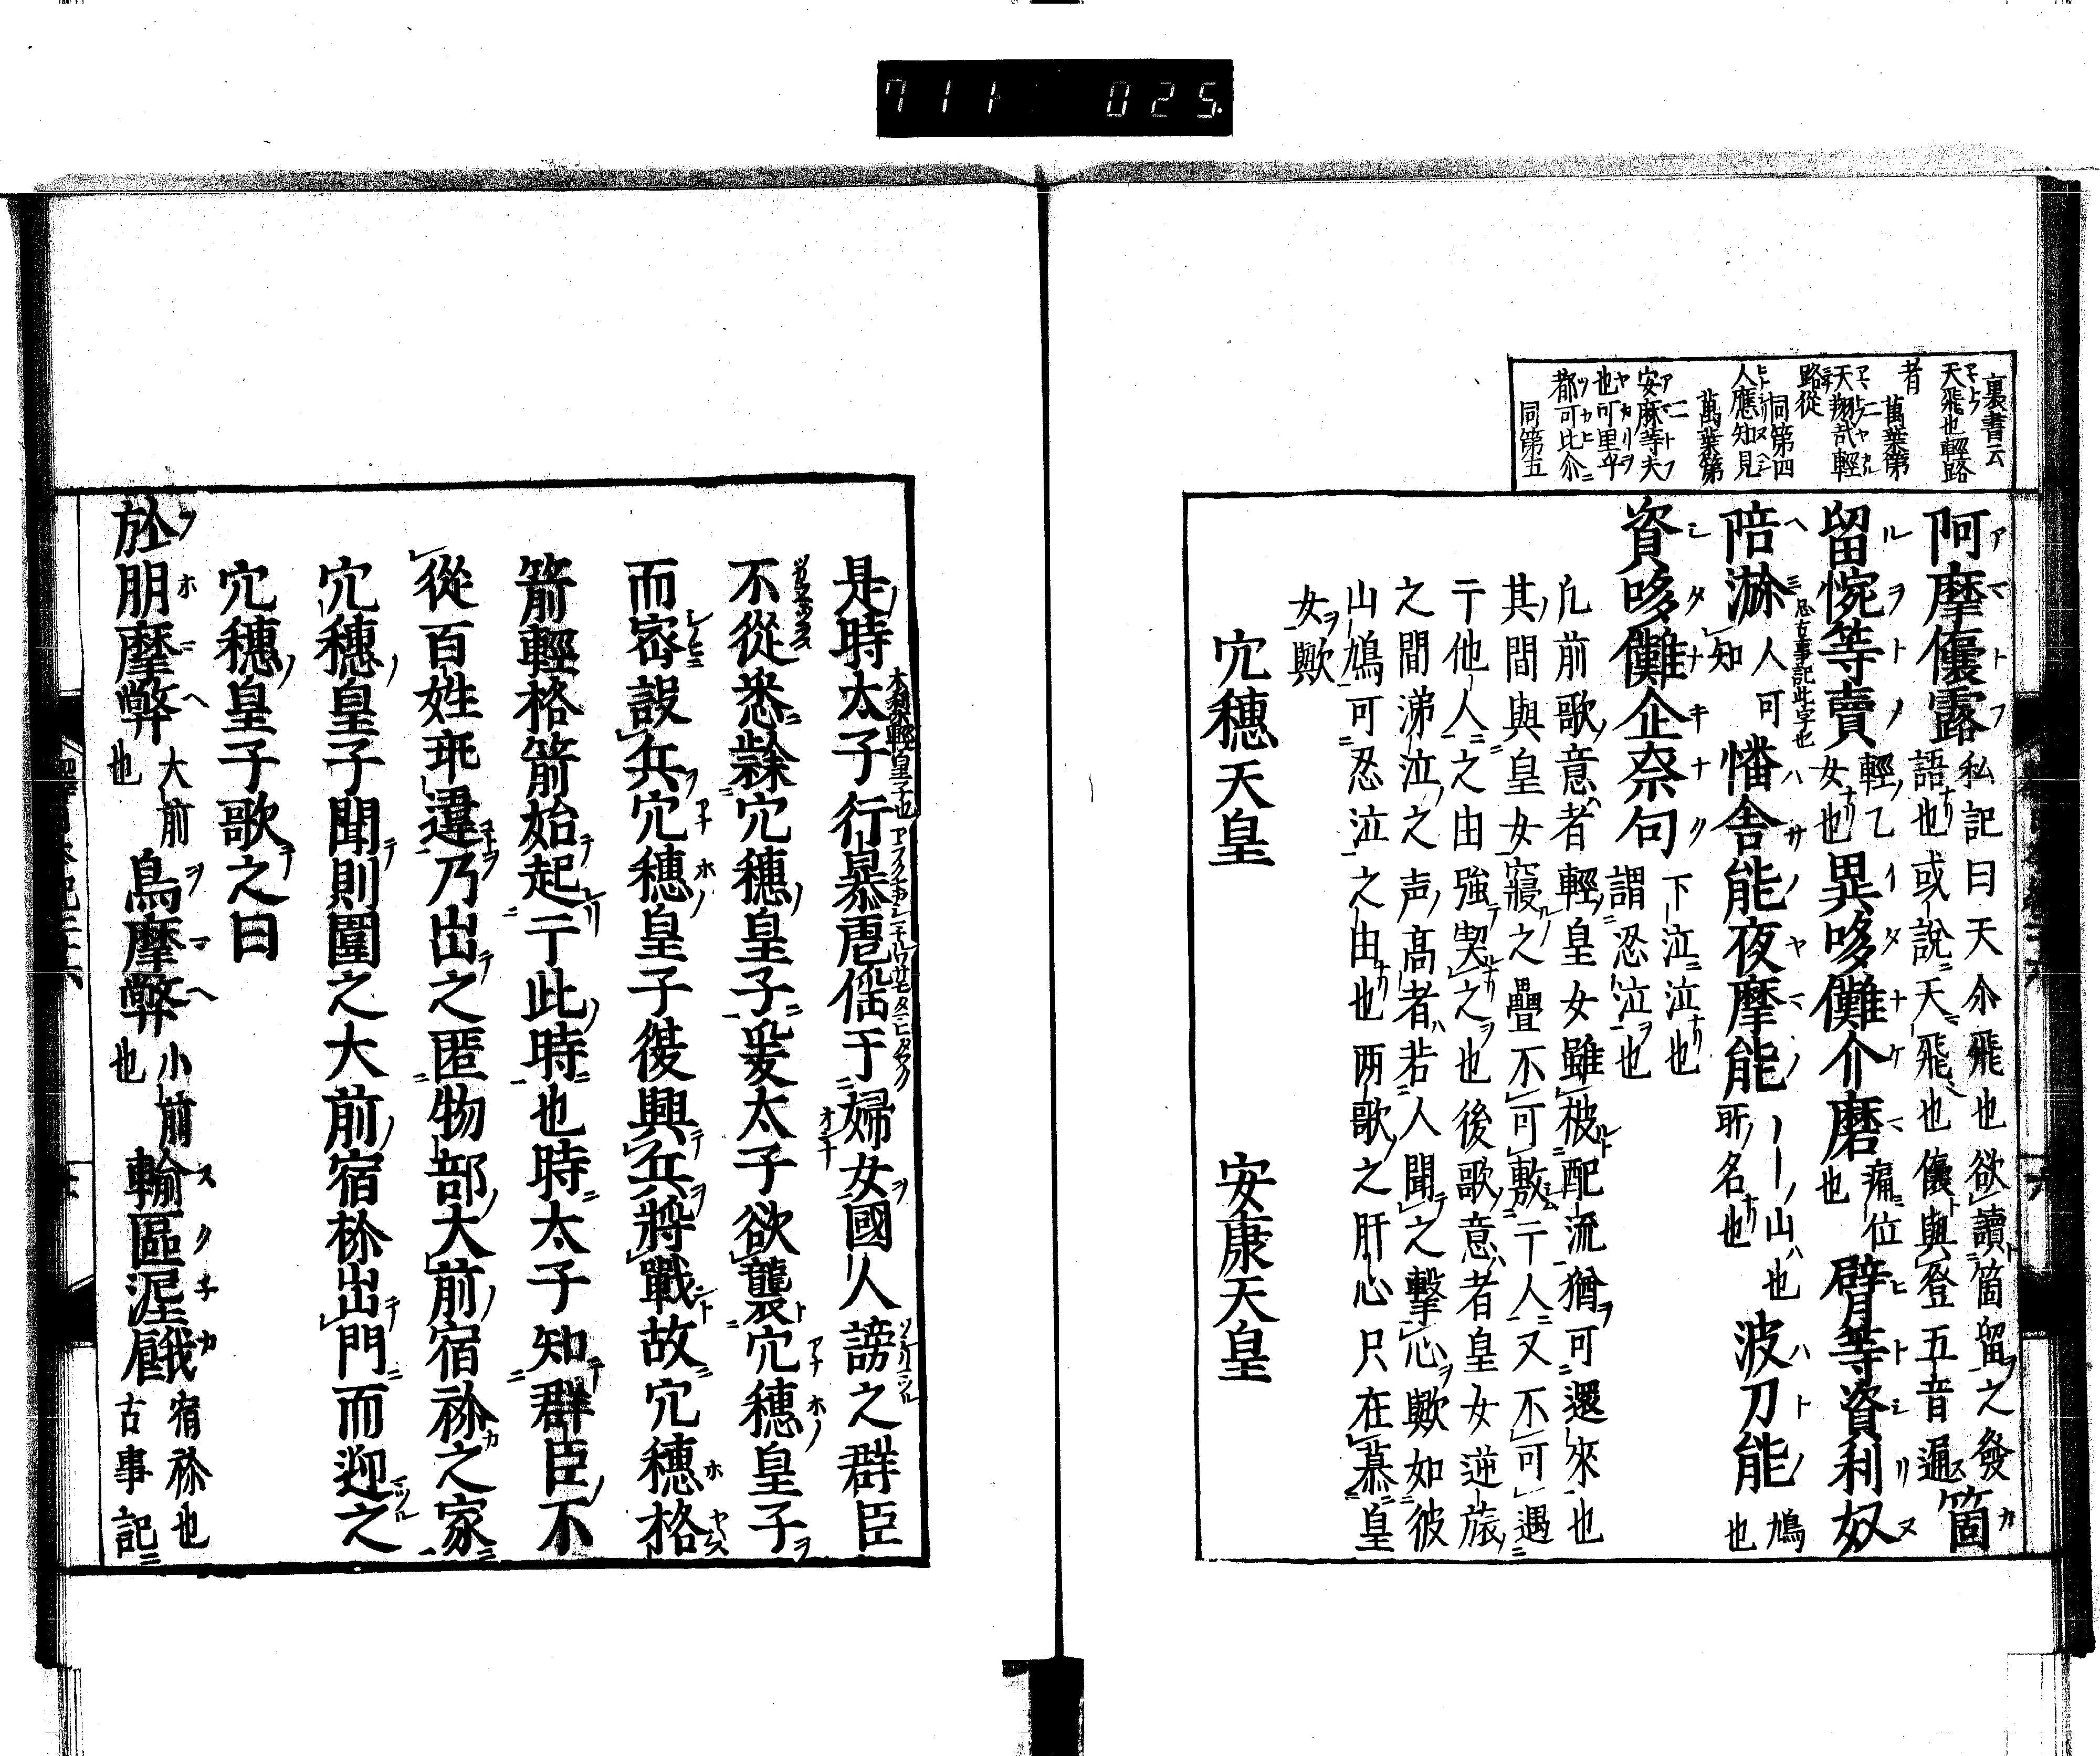 711 025
裏書云
天飛也輕路
者
萬葉第
天翔哉輕
路從
同第四
人應知見
萬葉第
安麻等夫
也可里乎
都可比尒
同第五
阿摩儾霧 私記曰天尒飛也欲讀箇留之發
語也或說天飛也儾與登五音通 箇
留惋等賣 輕乙
女也 異哆儺介磨 痛位
也 臂等資利奴
陪瀰 人可
知 幡舎能夜摩能 ーー山也
所名也 波刀能 鳩
也
資哆儺企奈句 下泣泣也
謂忍泣也
凢前歌意者輕皇女雖被配流猶可還來也
其間與皇女寢之疊不可敷亍人又不可遇
亍他人之由強契之也後歌意者皇女逆旅
之間涕泣之声高者若人聞之擊心歟如彼
山鳩可忍泣之由也两歌之肝心只在慕皇
女歟
穴穗天皇 安康天皇
是時太子行暴虐婬于婦女國人謗之群臣
不從悉隷穴穗皇子爰太子欲襲穴穗皇子
而密設兵穴穗皇子復興兵將戰故穴穗格
箭輕格箭始起亍此時也時太子知群臣不
從百姓乖違乃出之匿物部大前宿祢之家
穴穗皇子聞則圍之大前宿祢出門而迎之
穴穗皇子歌之曰
於朋摩弊 大前
也 烏摩弊 小前
也 輸區泥餓 宿祢也
古事記